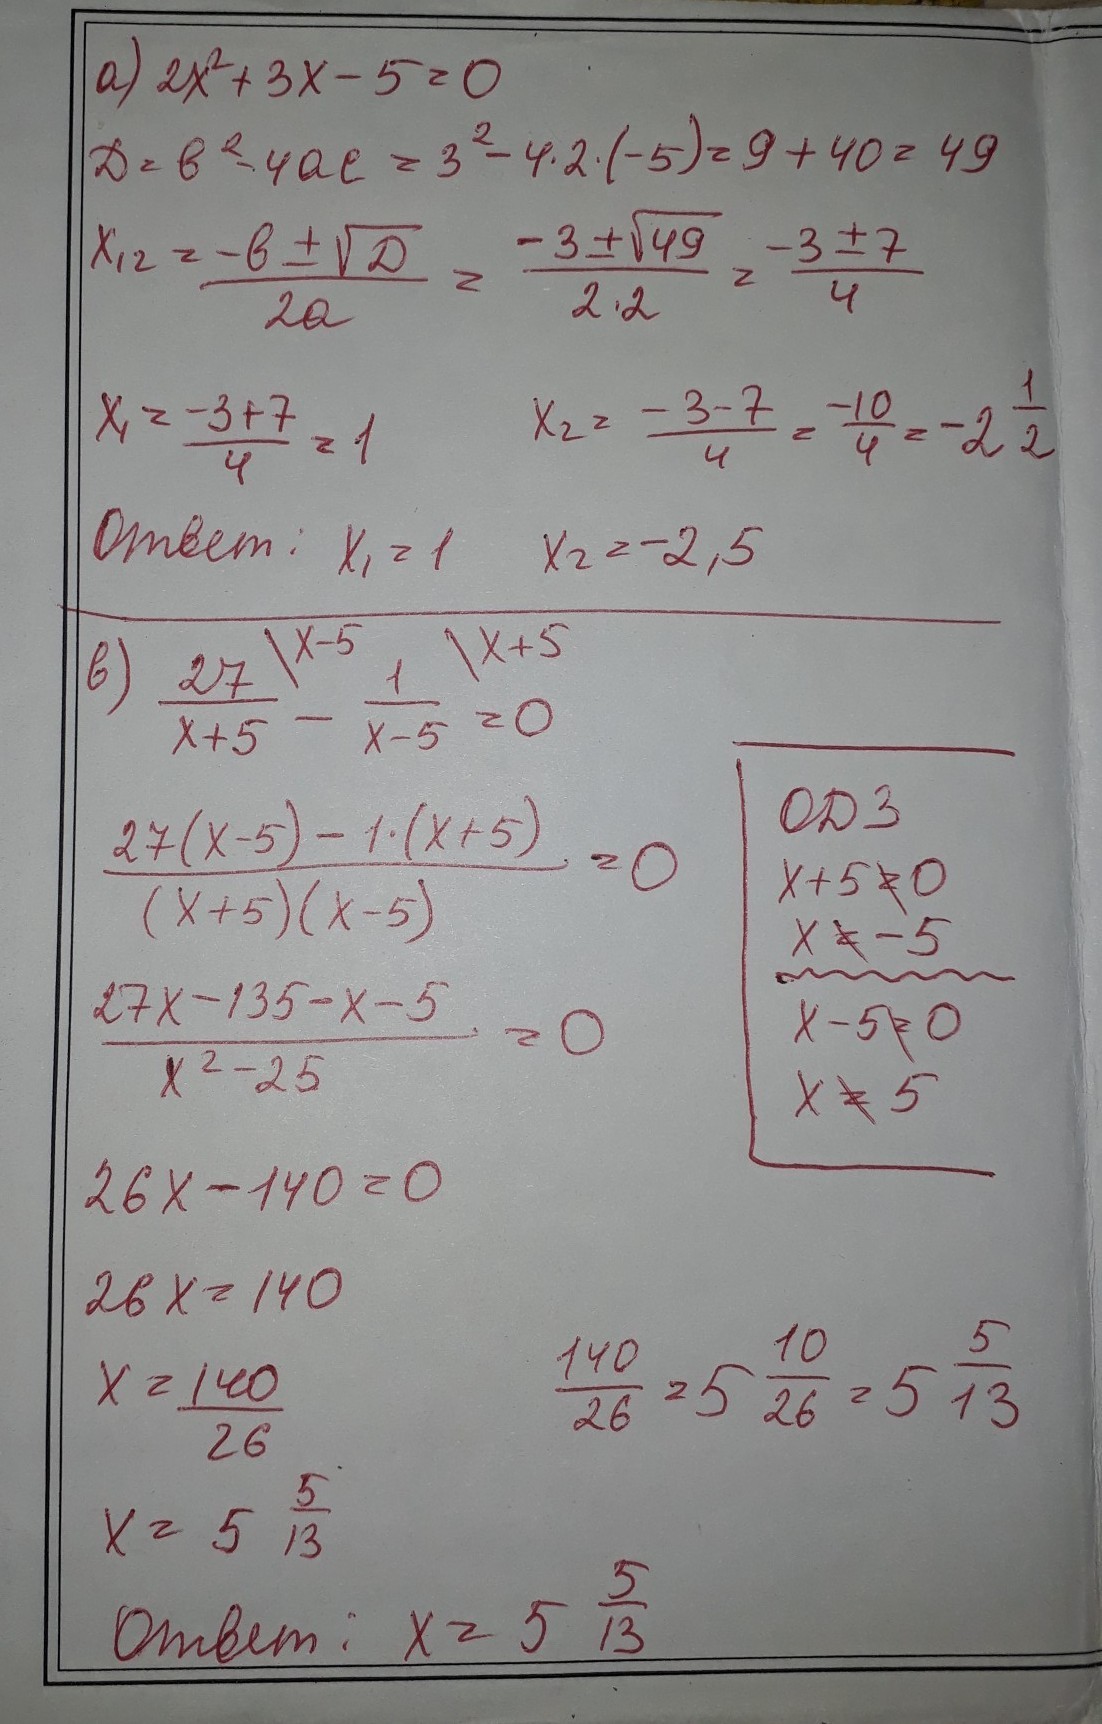 а) 2x² + 3x - 5 = 0
D = b² - 4ac = 3² - 4·2·(-5) = 9 + 40 = 49
x₁₂ = (-b ± √D)/(2a) = (-3 ± √49)/(2·2) = (-3 ± 7)/4
x₁ = (-3+7)/4 = 1    x₂ = (-3-7)/4 = -10/4 = -2 1/2
Ответ: x₁ = 1    x₂ = -2,5
в) 27/(x+5) \x-5 - 1/(x-5) \x+5 = 0
(27(x-5) - 1·(x+5))/((x+5)(x-5)) = 0
(27x - 135 - x - 5)/(x² - 25) = 0
26x - 140 = 0
26x = 140
x = 140/26    140/26 = 5 10/26 = 5 5/13
x = 5 5/13
Ответ: x = 5 5/13
ОДЗ
x+5 ≠ 0
x ≠ -5
x-5 ≠ 0
x ≠ 5